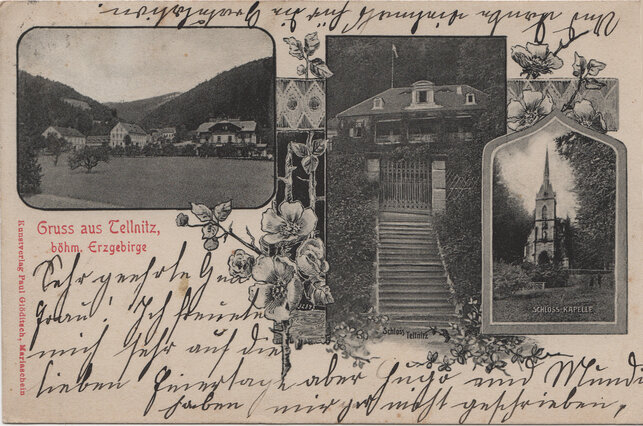 und danke vielmals für die Gratulation
Gruss aus Tellnitz,
böhm. Erzgebirge
Kunstverlag Paul Glöditsch, Mariaschein
Schloss Tellnitz
SCHLOSS-KAPELLE
Sehr geehrte
Frau! Ich freute
mich sehr auf die
lieben Feiertage aber Hugo und Mundi
haben mir gar nicht geschrieben,